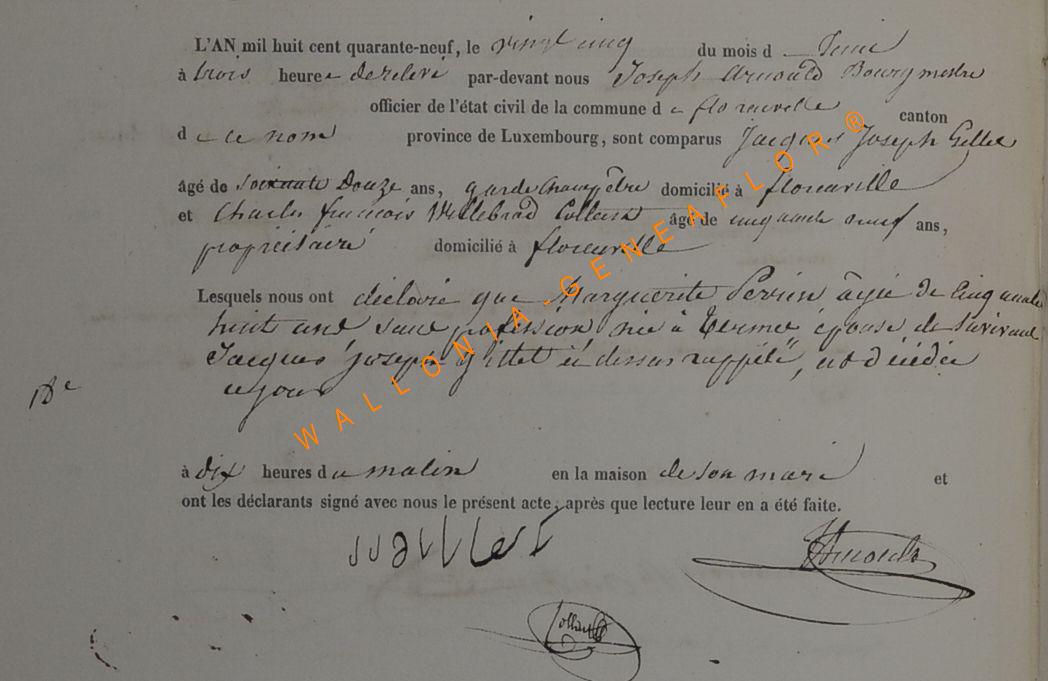 L'AN mil huit cent quarante-neuf, le vingt cinq du mois d
à trois heures de relevé par-devant nous Joseph Arnould Bourgmestre
officier de l'état civil de la commune de florenville canton
de ce nom province de Luxembourg, sont comparus Jacques Joseph Gillet
âgé de soixante Douze ans, garde champêtre domicilié à florenville
et Charles françois Willebrod âgé de cinquante neuf ans,
propriétaire domicilié à florenville
Lesquels nous ont déclaré que Marguerite Perrin âgée de Cinquante
huit ans sans profession née à Termes épouse de survivant
Jacques joseph gillet ci dessus rappelé, est décédée
ce jour
à dix heures du matin en la maison de son mari et
ont les déclarants signé avec nous le présent acte, après que lecture leur en a été faite.
Arnould
WALLONIA-GENEAFLOR®